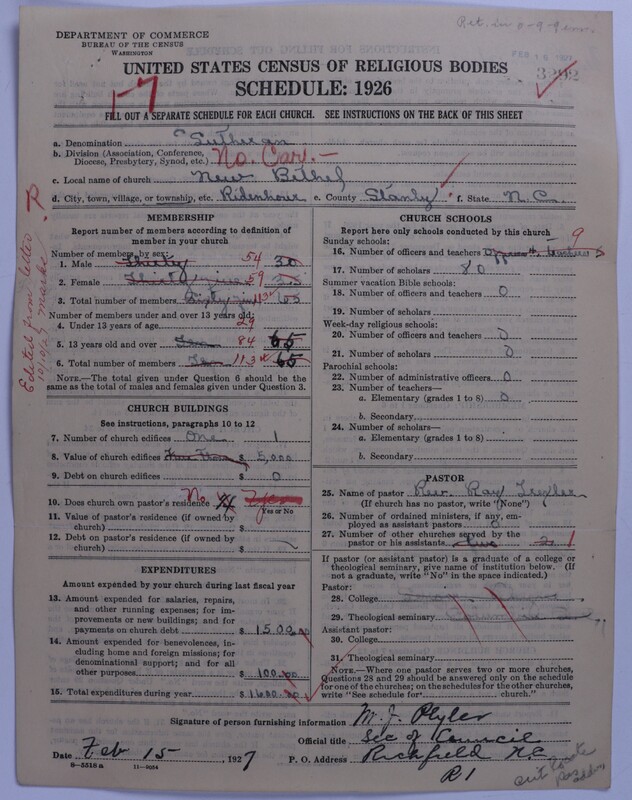 Ret. in
DEPARTMENT OF COMMERCE
BUREAU OF THE CENSUS
WASHINGTON
3292
UNITED STATES CENSUS OF RELIGIOUS BODIES
SCHEDULE: 1926
1-7
FILL OUT A SEPARATE SCHEDULE FOR EACH CHURCH. SEE INSTRUCTIONS ON THE BACK OF THIS SHEET
a. Denomination Lutheran
b. Division (Association, Conference, Diocese, Presbytery, Synod, etc.) No. Car.-
c. Local name of church New Bethel
d. City, town, village, or township, etc. Ridenhour e. County Stanly f. State N.C.
Edited from letter
MEMBERSHIP
Report number of members according to definition of
member in your church
Number of members by sex:
1. Male Thirty 54 30
2. Female 59 35
3. Total number of members 113 65
Number of members under and over 13 years old:
4. Under 13 years of age 29
5. 13 years old and over 84 65
6. Total number of members 113 65
NOTE.—The total given under Question 6 should be
the same as the total of males and females given under Question 3.
CHURCH BUILDINGS
See instructions, paragraphs 10 to 12
7. Number of church edifices One 1
8. Value of church edifices $ 5,000
9. Debt on church edifices $ 0
10. Does church own pastor's residence No Yes
Yes or No
11. Value of pastor's residence (if owned by
church) $
12. Debt on pastor's residence (if owned by
church) $
EXPENDITURES
Amount expended by your church during last fiscal year
13. Amount expended for salaries, repairs,
and other running expenses; for im-
provements or new buildings; and for
payments on church debt $ 1500.00
14. Amount expended for benevolences,
including home and foreign missions; for
denominational support; and for all
other purposes $ 100.00
15. Total expenditures during year $ 1600.00
CHURCH SCHOOLS
Report here only schools conducted by this church
Sunday schools:
16. Number of officers and teachers 9
17. Number of scholars 80
Summer vacation Bible schools:
18. Number of officers and teachers 0
19. Number of scholars
Week-day religious schools:
20. Number of officers and teachers 0
21. Number of scholars 0
Parochial schools:
22. Number of administrative officers 0
23. Number of teachers—
a. Elementary (grades 1 to 8) 0
b. Secondary
24. Number of scholars—
a. Elementary (grades 1 to 8)
b. Secondary
PASTOR
25. Name of pastor Rev. Ray Trexler
(If church has no pastor, write "None")
26. Number of ordained ministers, if any, em-
ployed as assistant pastors 0
27. Number of other churches served by the
pastor or his assistants two 2 1
If pastor (or assistant pastor) is a graduate of a college or
theological seminary, give name of institution below. (If
not a graduate, write "No" in the space indicated.)
Pastor:
28. College
29. Theological seminary
Assistant pastor:
30. College
31. Theological seminary
NOTE.—Where one pastor serves two or more churches,
Questions 28 and 29 should be answered only on the schedule
for one of the churches; on the schedules for the other churches,
write "See schedule for church."
Signature of person furnishing information M. J. Plyler
Official title Sec of Council
Date Feb 15, 1927 P. O. Address Richfield N.C.
R 1
8-5518 a 11-9034